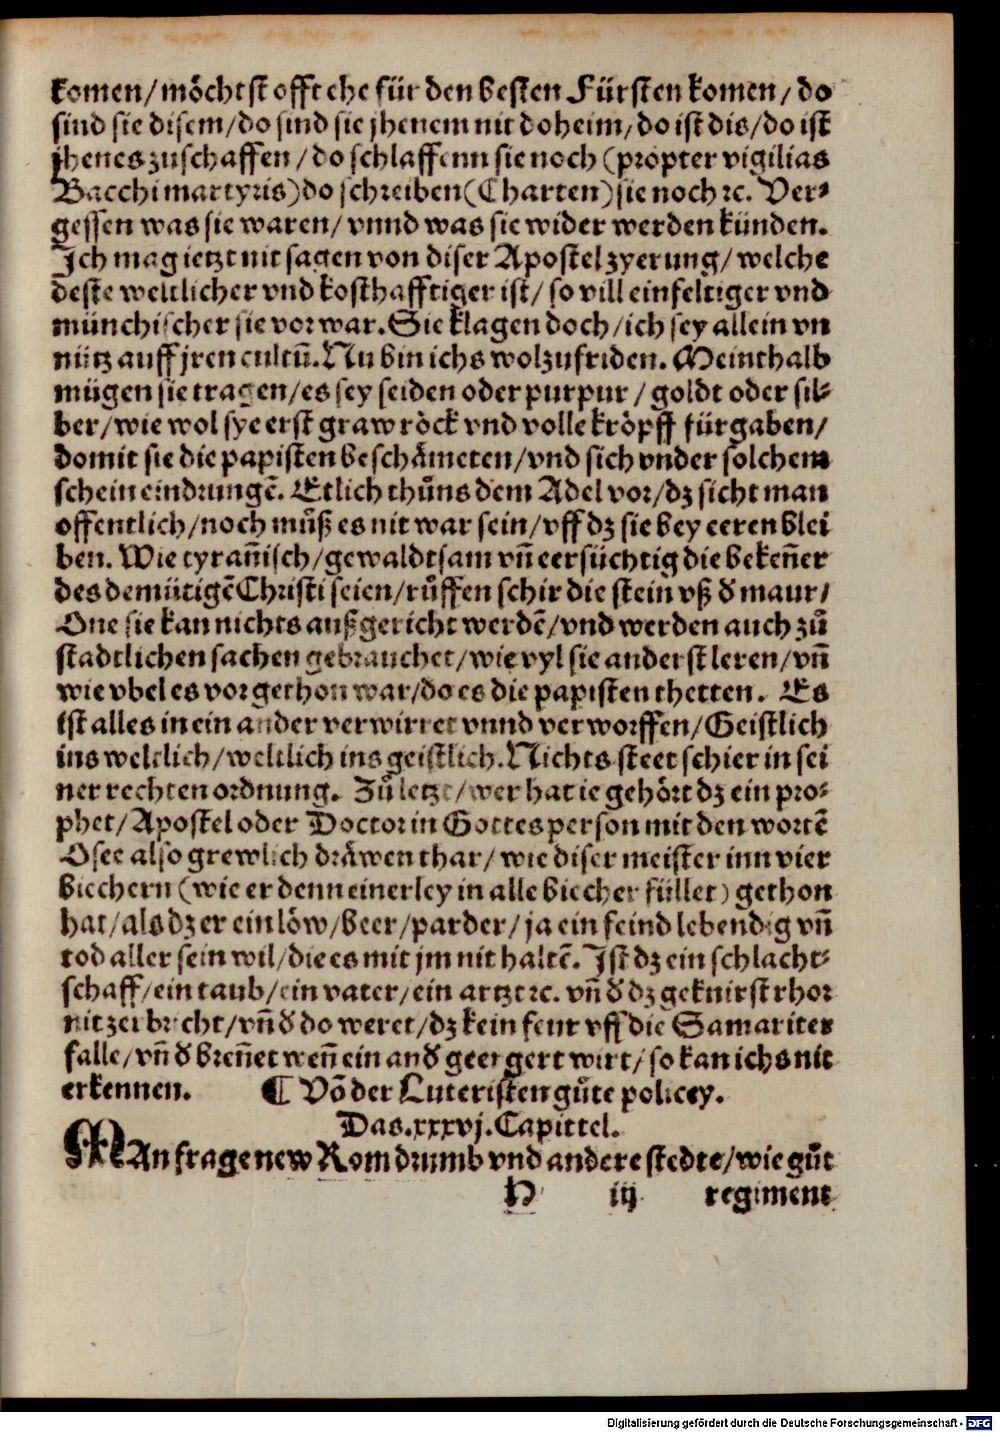 komen/möchtst offt ehe für den besten Fürsten komen/do
sind sie disem/do sind sie jhenem nit doheim/do ist dis/do ist
jhenes zuschaffen/do schlaffenn sie noch (propter vigilias
Bacchi martyris) do schreiben (Charten) sie noch ꝛc. Ver-
gessen was sie waren/vnnd was sie wider werden künden.
Ich mag ietzt nit sagen von diser Apostel zyerung/welche
deste weltlicher vnd kosthafftiger ist/so vill einfeltiger vnd
münchischer sie vor war. Sie klagen doch/ich sey allein vn
nütz auff jren cultū. Nu bin ichs wolzufriden. Meinthalb
mügen sie tragen/es sey seiden oder purpur/goldt oder sil-
ber/wie wol sye erst graw röck vnd volle kröpff fürgaben/
domit sie die papisten beschämeten/vnd sich vnder solchem
schein eindrungē. Etlich thůns dem Adel vor/dz sicht man
offentlich/noch můß es nit war sein/vff dz sie bey eeren blei
ben. Wie tyrañisch/gewaldtsam vñ eersüchtig die bekeñer
des demütigē Christi seien/růffen schir die stein vß d̕ maur/
One sie kan nichts außgericht werdē/vnd werden auch zů
stadtlichen sachen gebrauchet/wie vyl sie anderst leren/vñ
wie vbel es vor gethon war/do es die papisten thetten. Es
ist alles in ein ander verwirret vnnd verworffen/Geistlich
ins weltlich/weltlich ins geistlich. Nichts steet schier in sei
ner rechten ordnung. Zů letzt/wer hat ie gehört dz ein pro-
phet/Apostel oder Doctor in Gottes person mit den wortē
Osee also grewlich dräwen thar/wie diser meister inn vier
biechern (wie er denn einerley in alle biecher füllet) gethon
hat/als dz er ein löw/beer/parder/ja ein feind lebendig vñ
tod aller sein wil/die es mit jm nit haltē. Ist dz ein schlacht-
schaff/ein taub/ein vater/ein artzt ꝛc. vñ d̕ dz geknirst rhor
nit zerbricht/vñ d̕ do weret/dz kein feur vff die Samariter
falle/vñ d̕ breñet weñ ein and̕ geergert wirt/so kan ichs nit
erkennen. ¶ Vō der Luteristen gůte policey.
Das .xxxvj. Capittel.
MAn frage new Rom drumb vnd andere stedte/wie gůt
H iij regiment
Digitalisierung gefördert durch die Deutsche Forschungsgemeinschaft - DFG